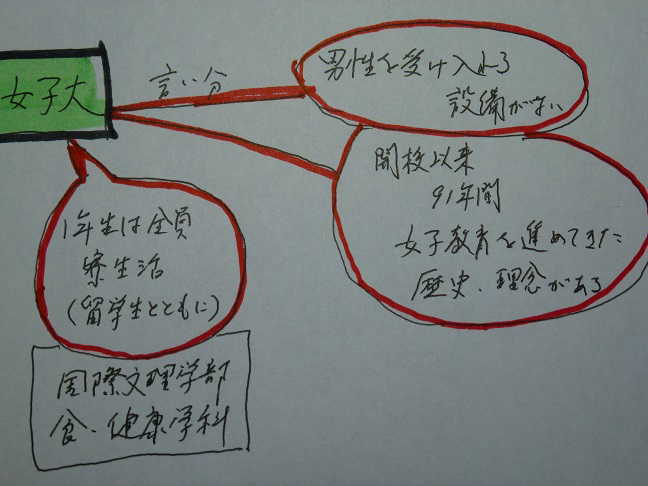 女子大
言い分
男性を受け入れる
設備がない
開校以来
91年間
女子教育を進めてきた
歴史、理念がある
1年生は全員
寮生活
(留学生とともに)
国際文理学部
食・健康学科